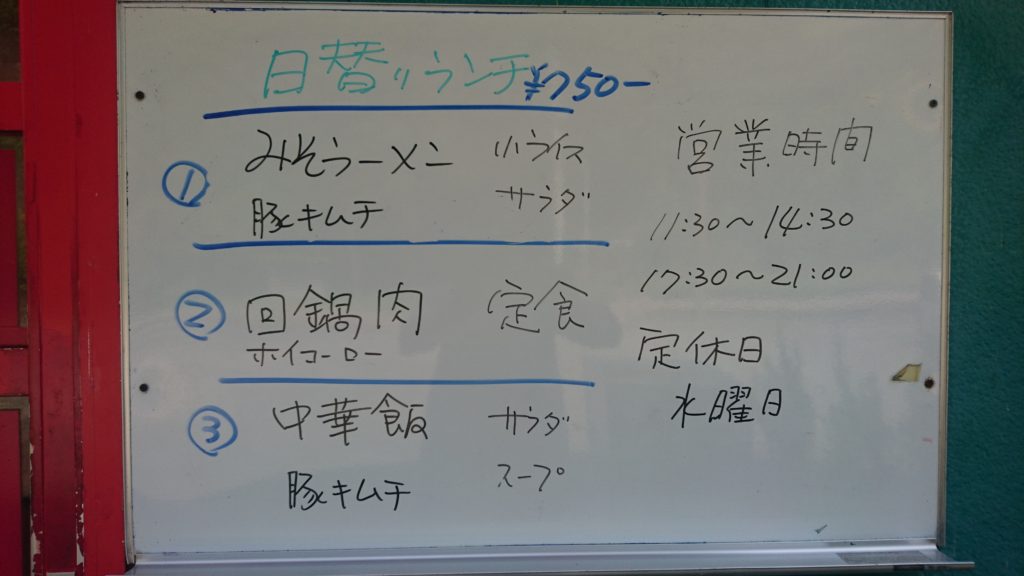 日替りランチ ¥750-
① みそラーメン 小ライス
豚キムチ サラダ
② 回鍋肉 定食
ホイコーロー
③ 中華飯 サラダ
豚キムチ スープ
営業時間
11:30～14:30
17:30～21:00
定休日
水曜日